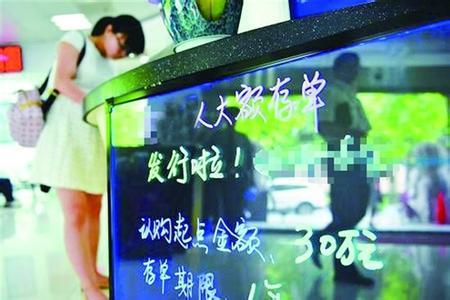 人大额存单
发行啦！
认购起点金额，30万
存单期限，1年